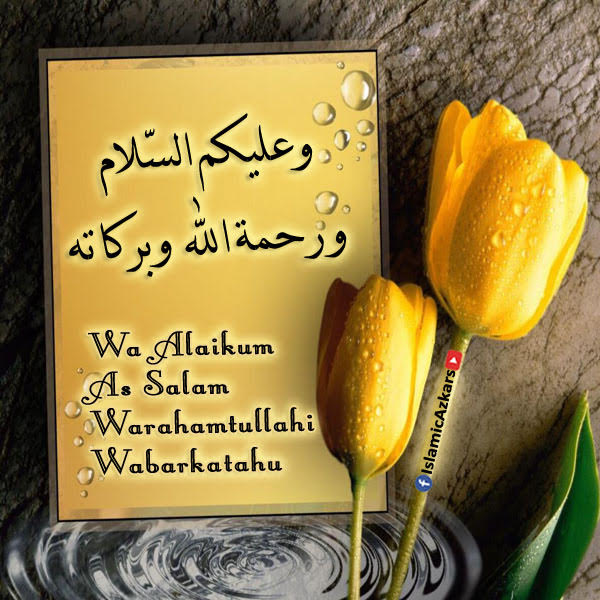 وعليكم السّلام
ورحمة الله وبركاته
Wa Alaikum
As Salam
Warahamtullahi
Wabarkatahu
IslamicAzkars